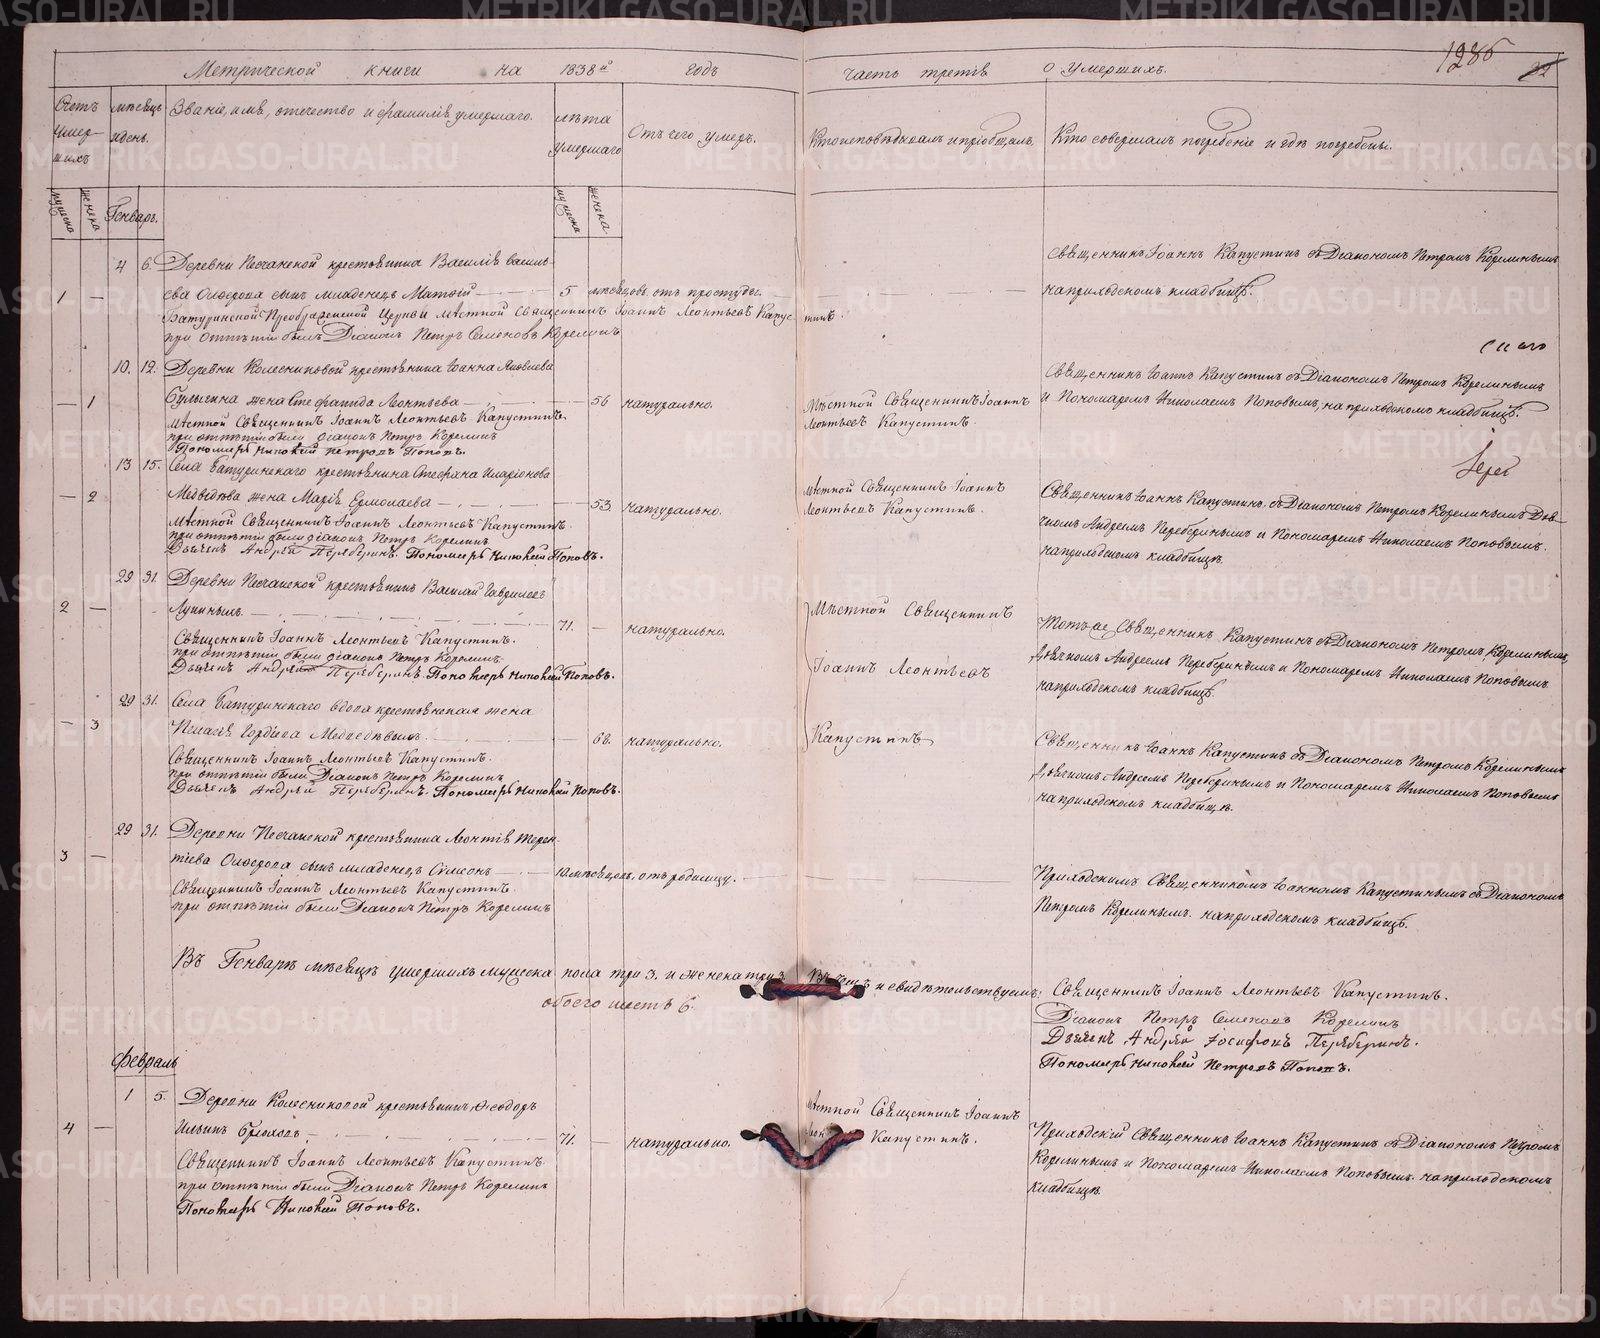 Метрической книги на 1838й годъ часть третiя о умершихъ.
1286
22
Счетъ умерших
мѣсяцъ и день.
Званiе, имя, отечество и фамилiя умершаго.
лѣта умершаго
Отъ чего умеръ.
Кто исповѣдывалъ и прiобщалъ.
Кто совершалъ погребенiе и гдѣ погребены.
мужеска
женска
Генварь.
мужеска
женска
4 6. Деревни Песчанской крестьянина Василiя Василь-
1 — ева сынъ младенецъ Матѳiй — 5 мѣсяцовъ отъ простуды.
Батуринской Преображенской Церкви мѣстной Священникъ Iоаннъ Леонтьевъ Капустинъ.
при отпѣтiи былъ Дiаконъ Петръ Семеновъ Корелинъ
Священникъ Iоаннъ Капустинъ съ Дiакономъ Петромъ Корелинымъ
на приходскомъ кладбищѣ.
10. 12. Деревни Колесниковой крестьянина Iоанна Яковлева
— 1 Булыгина жена Стефанида Леонтьева — 56 натурально.
мѣстной Священникъ Iоаннъ Леонтьевъ Капустинъ
при отпѣтiи были дiаконъ Петръ Корелинъ
Пономарь Николай Петровъ Поповъ.
Мѣстной Священникъ Iоаннъ
Леонтьевъ Капустинъ.
Священникъ Iоаннъ Капустинъ съ Дiакономъ Петромъ Корелинымъ
и Пономаремъ Николаемъ Поповымъ, на приходскомъ кладбищѣ.
13 15. Села Батуринскаго крестьянина Стефана Иларiонова
— 2 Медвѣдева жена Марiя Ермолаева — 53 натурально.
мѣстной Священникъ Iоаннъ Леонтьевъ Капустинъ.
при отпѣтiи были дiаконъ Петръ Корелинъ
Дьячекъ Андрей Переберинъ. Пономарь Николай Поповъ.
мѣстной Священникъ Iоаннъ
Леонтьевъ Капустинъ.
Священникъ Iоаннъ Капустинъ, съ Дiакономъ Петромъ Корелинымъ Дья-
чкомъ Андреемъ Переберинымъ и Пономаремъ Николаемъ Поповымъ.
на приходскомъ кладбищѣ.
29 31. Деревни Песчанской крестьянинъ Василiй Гавриловъ
2 — 71. — натурально.
Священникъ Iоаннъ Леонтьевъ Капустинъ.
при отпѣтiи были дiаконъ Петръ Корелинъ
Дьячекъ Андрей Переберинъ. Пономарь Николай Поповъ.
Мѣстной Священникъ
Iоаннъ Леонтьевъ
Капустинъ
Тотъ же Священникъ Капустинъ съ Дiакономъ Петромъ Корелинымъ,
Дьячкомъ Андреемъ Переберинымъ и Пономаремъ Николаемъ Поповымъ
на приходскомъ кладбищѣ.
29 31. Села Батуринскаго вдова крестьянская жена
— 3 натурально.
Священникъ Iоаннъ Леонтьевъ Капустинъ.
при отпѣтiи были Дiаконъ Петръ Корелинъ
Дьячекъ Андрей Переберинъ. Пономарь Николай Поповъ.
Священникъ Iоаннъ Капустинъ съ Дiакономъ Петромъ Корелинымъ
Дьячкомъ Андреемъ Переберинымъ и Пономаремъ Николаемъ Поповымъ
на приходскомъ кладбищѣ.
29 31. Деревни Песчанской крестьянина Леонтiя Терен-
3 — тiева сынъ младенецъ Сѵмеонъ — 10 мѣсяцовъ, отъ родимцу.
Священникъ Iоаннъ Леонтьевъ Капустинъ
при отпѣтiи были Дiаконъ Петръ Корелинъ
Приходскимъ Священникомъ Iоанномъ Капустинымъ съ Дiакономъ
Петромъ Корелинымъ. на приходскомъ кладбищѣ.
Въ Генварѣ мѣсяцѣ умершихъ мужеска пола три 3. и женска три 3.
обоего шесть 6.
и свидѣтельствуемъ: Священникъ Iоаннъ Леонтьевъ Капустинъ.
Дiаконъ Петръ Семеновъ Корелинъ
Дьячекъ Андрей Iосифовъ Переберинъ.
Пономарь Николай Петровъ Поповъ.
Февраль
1 5. Деревни Колесниковой крестьянинъ Ѳеодоръ
4 — Ильинъ — 71. — натурально.
Священникъ Iоаннъ Леонтьевъ Капустинъ.
при отпѣтiи были Дiаконъ Петръ Корелинъ
Пономарь Николай Поповъ.
мѣстной Священникъ Iоаннъ
Капустинъ.
Приходскiй Священникъ Iоаннъ Капустинъ съ Дiакономъ Петромъ
Корелинымъ и Пономаремъ Николаемъ Поповымъ на приходскомъ
кладбищѣ.
METRIKI.GASO-URAL.RU